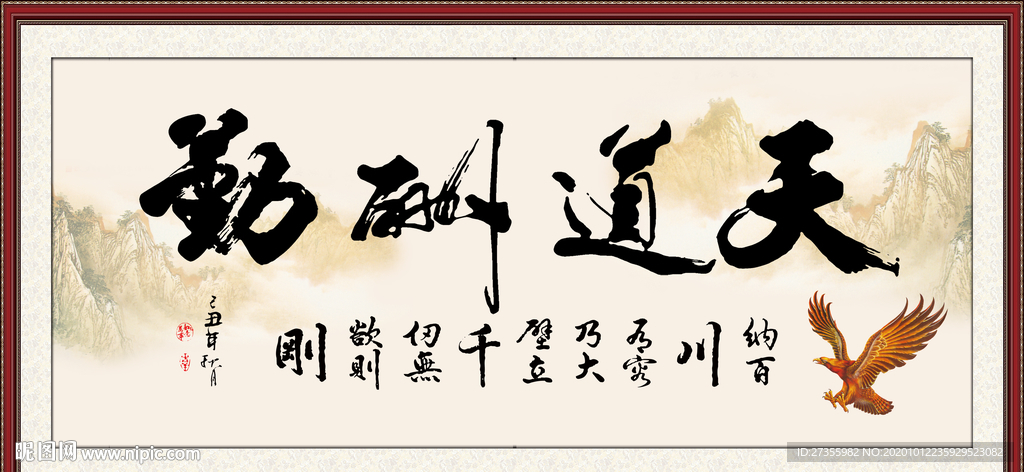 天道酬勤
納百川有容乃大壁立千仞無欲則剛
己丑年秋月
昵图网 www.nipic.com
ID:27355982 NO:20201012235929523082